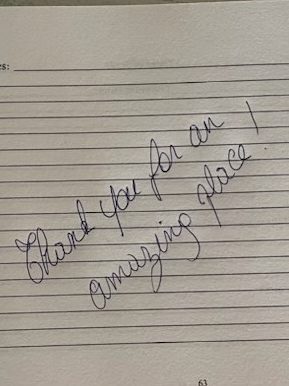 es:
Thank you for an
amazing place!
63